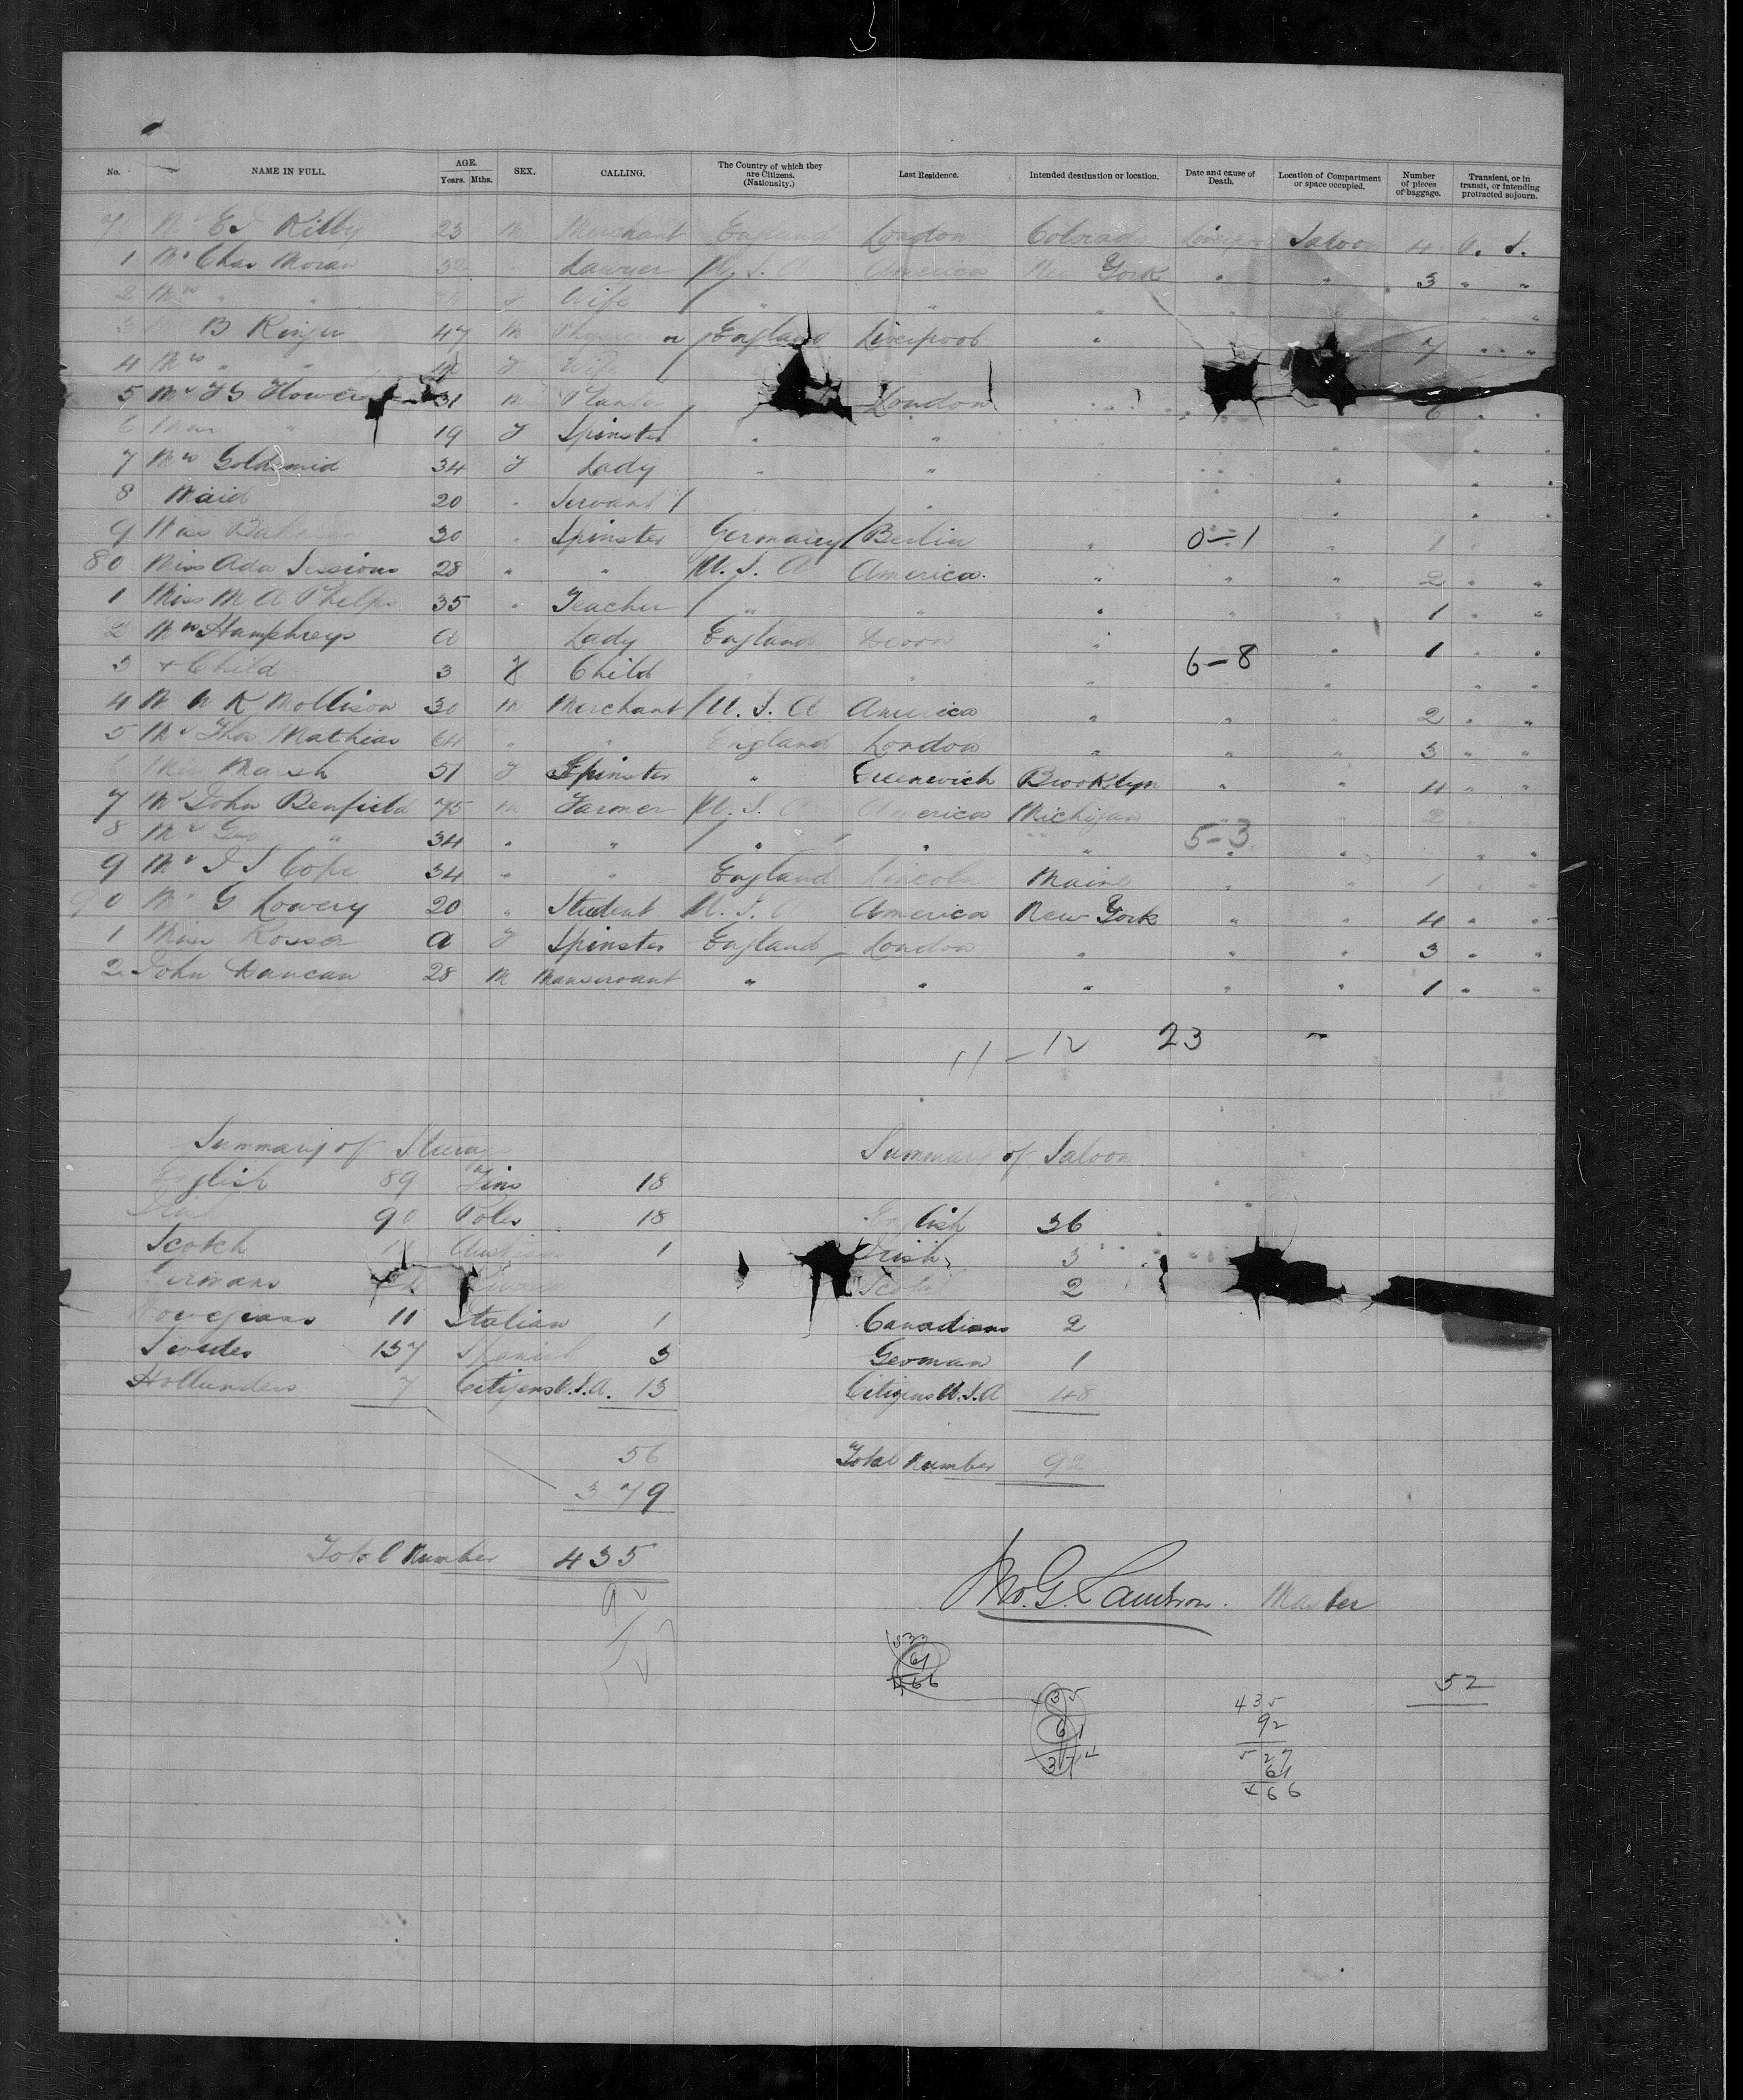 No. NAME IN FULL. AGE. Years. Mths. SEX. CALLING. The Country of which they are Citizens. (Nationality.) Last Residence. Intended destination or location. Date and cause of Death. Location of Compartment or space occupied. Number of pieces of baggage. Transient, or in transit, or intending protracted sojourn.
Mr E J Kilby 23 M Merchant England London Colorado Liverpool Saloon 4 U. S.
1 Mr Chas Moran Lawyer U. S. A America New York " " 3 " "
2 Mrs " " F Wife " " " " "
3 B Ringer 47 M England Liverpool " 7 " "
4 Mrs " " F Wife
5 Mr F G Flower 31 M London " "
6 " 19 F Spinster " " " "
7 Mrs Goldsmid 34 F Lady " " " " "
8 Maid 20 " Servant " " " "
9 30 " Spinster Germany Berlin " 0-1 " 1 "
80 Miss Ada Sessions 28 " " U. S. A America. " " " 2 " "
1 Miss M A Phelps 35 " Teacher " " " " " 1 " "
2 Mrs Humphreys a Lady England Devon " " 1 " "
3 + Child 3 F Child " " " 6-8 " " "
4 K Mollison 30 M Merchant U. S. A America " " " 2 " "
5 Mr Thos Mathias 64 " " England London " " " 3 " "
Miss Marsh 51 F Spinster " Greenwich Brooklyn " " 4 " "
7 Mr John Benfield 75 M Farmer U. S. A America Michigan " 2 " "
8 Mr Geo " 34 " " " " " 5-3 " " "
9 Mr J S Cope 34 " " England Lincoln Maine " " 1 " "
90 Mr G Lowery 20 " Student U. S. A America New York " " 4 " "
1 Miss Rosser a F Spinster England London " " " 3 " "
2 John Duncan 28 M Manservant " " " " " 1 " "
11 - 12 23
Summary of Steerage Summary of Saloon
English 89 Fins 18
Irish 90 Poles 18 English 36
Scotch Austrian 1 Irish 3
Germans Scotch 2
Norwegians 11 Italian 1 Canadians 2
Swedes 137 Spanish 3 German 1
Hollanders 7 Citizens U.S.A. 13 Citizens U.S.A 48
56 Total Number 92
379
Total Number 435
92
527
Jno. G. Cameron. Master
533
61
466
52
435
61
374
435
92
527
61
466